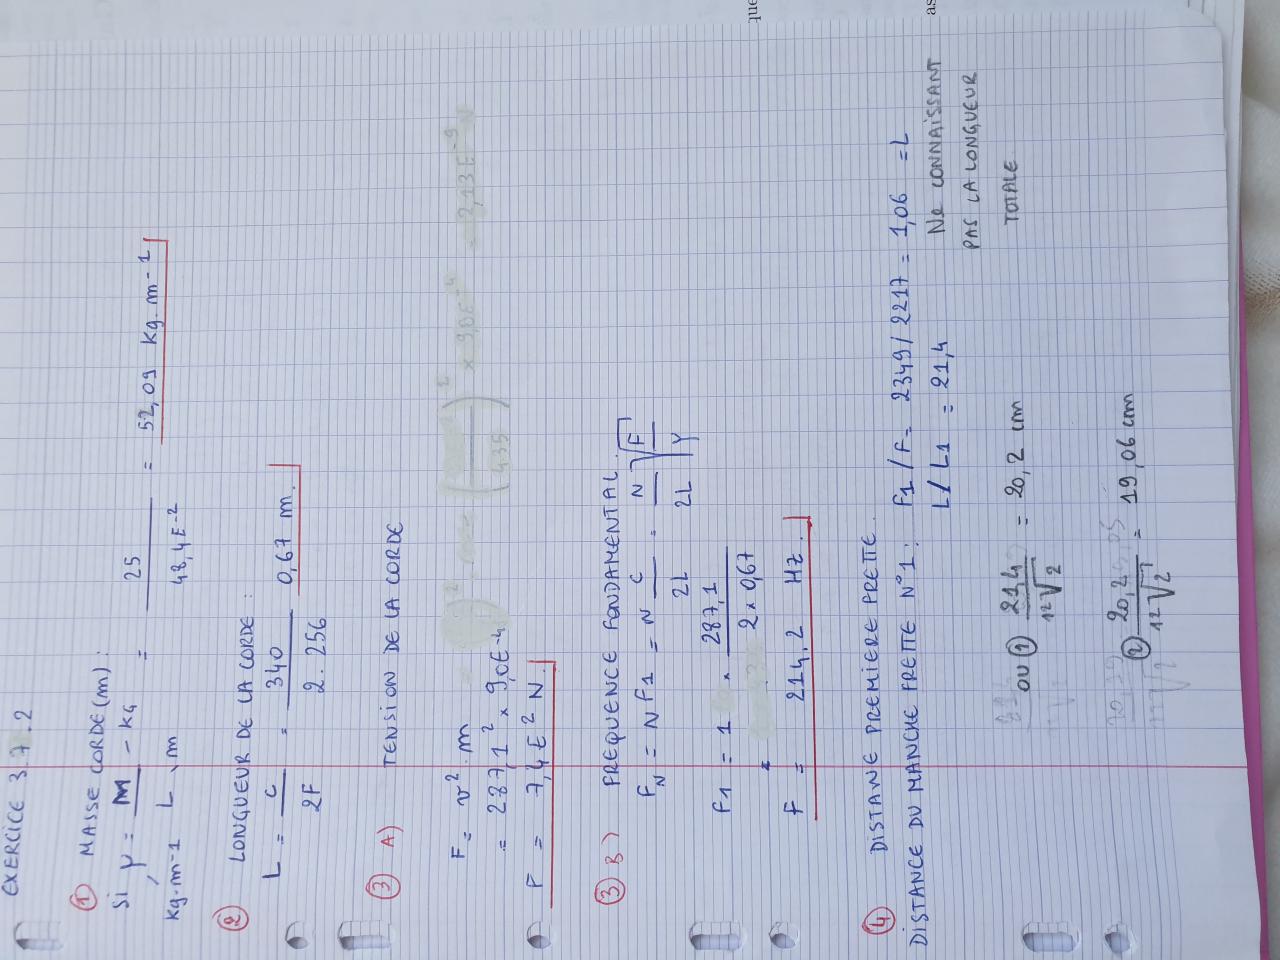 EXERCICE 3.7.2
① MASSE CORDE (m) :
Si μ = M - kg = 25 = 52,09 kg.m-1
kg.m-1 L, m 48,4E-2
② LONGUEUR DE LA CORDE :
L = c = 340 0,67 m.
2F 2.256
③ A) TENSION DE LA CORDE
F = v². m
= 287,1² × 9,0E-4
F = 7,4E²N
③ B) FREQUENCE FONDAMENTAL.
FN = N F1 = N c = N √F
2L 2L μ
F1 = 1 × 287,1
2 × 0,67
F = 214,2 Hz.
④ DISTANE PREMIERE FRETTE
DISTANCE DU MANCHE FRETTE N°1 : F1/F = 2349/2217 = 1,06 = L
L/L1 = 21,4
Ne CONNAISSANT
PAS LA LONGUEUR
TOTALE
OU ① 21,4 = 20,2 cm
12√2
② 20,2 = 19,06 cm
12√2
que
as